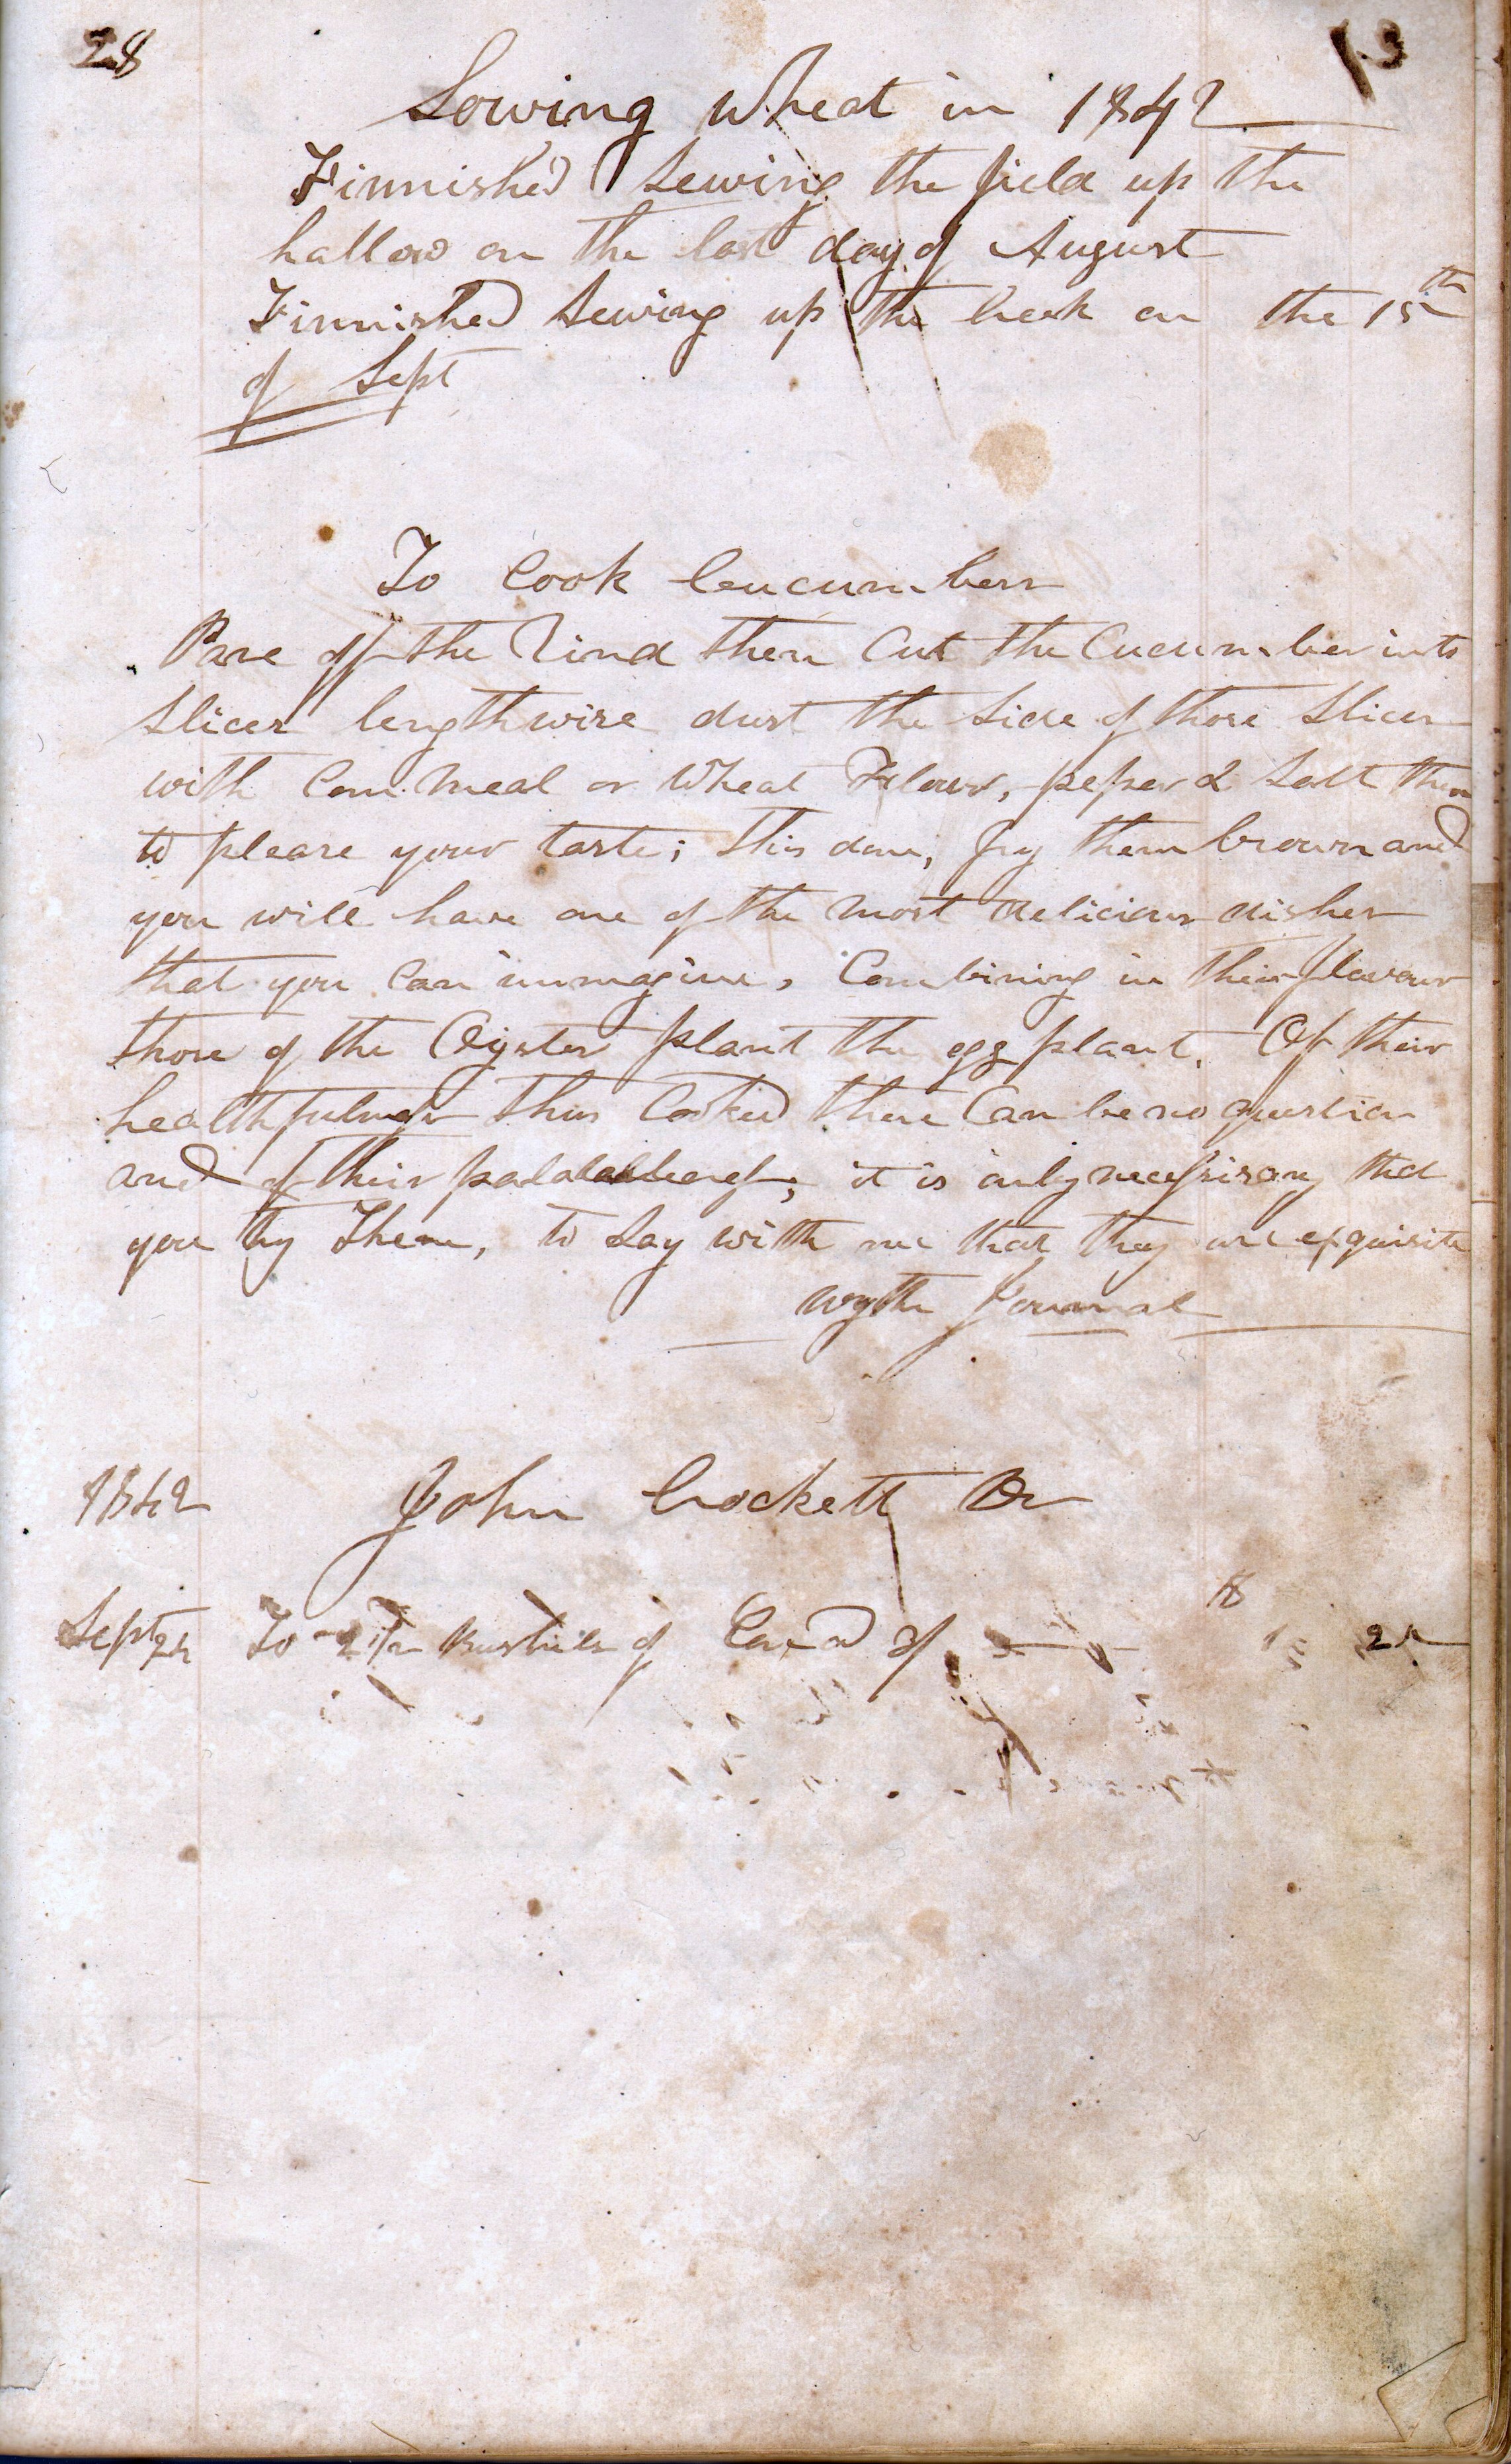 28
13
Sowing Wheat in 1842
Finnished Sewing the field up the
hallow on the last day of August
Finnished Sewing up the creek on the 15th
of Sept
To Cook Ceucumbers
Pare off the Rind then Cut the Cucumber into
slices lengthwise dust the side of those slices
with Corn meal or Wheat Flour, peper & salt them
to please your taste; this done, fry them brown and
you will have one of the most delicious dishes
that you can immagine, Combining in their flavour
those of the Oyster plant the egg plant. Of their
healthfulness thus Cooked there Can be no question
and of their palatableness; it is only necessisary that
you try them, to say with me that they are exquisite
Wythe Journal
1842 John Crockett Dr
Sept To 2 1/2 Bushels of of